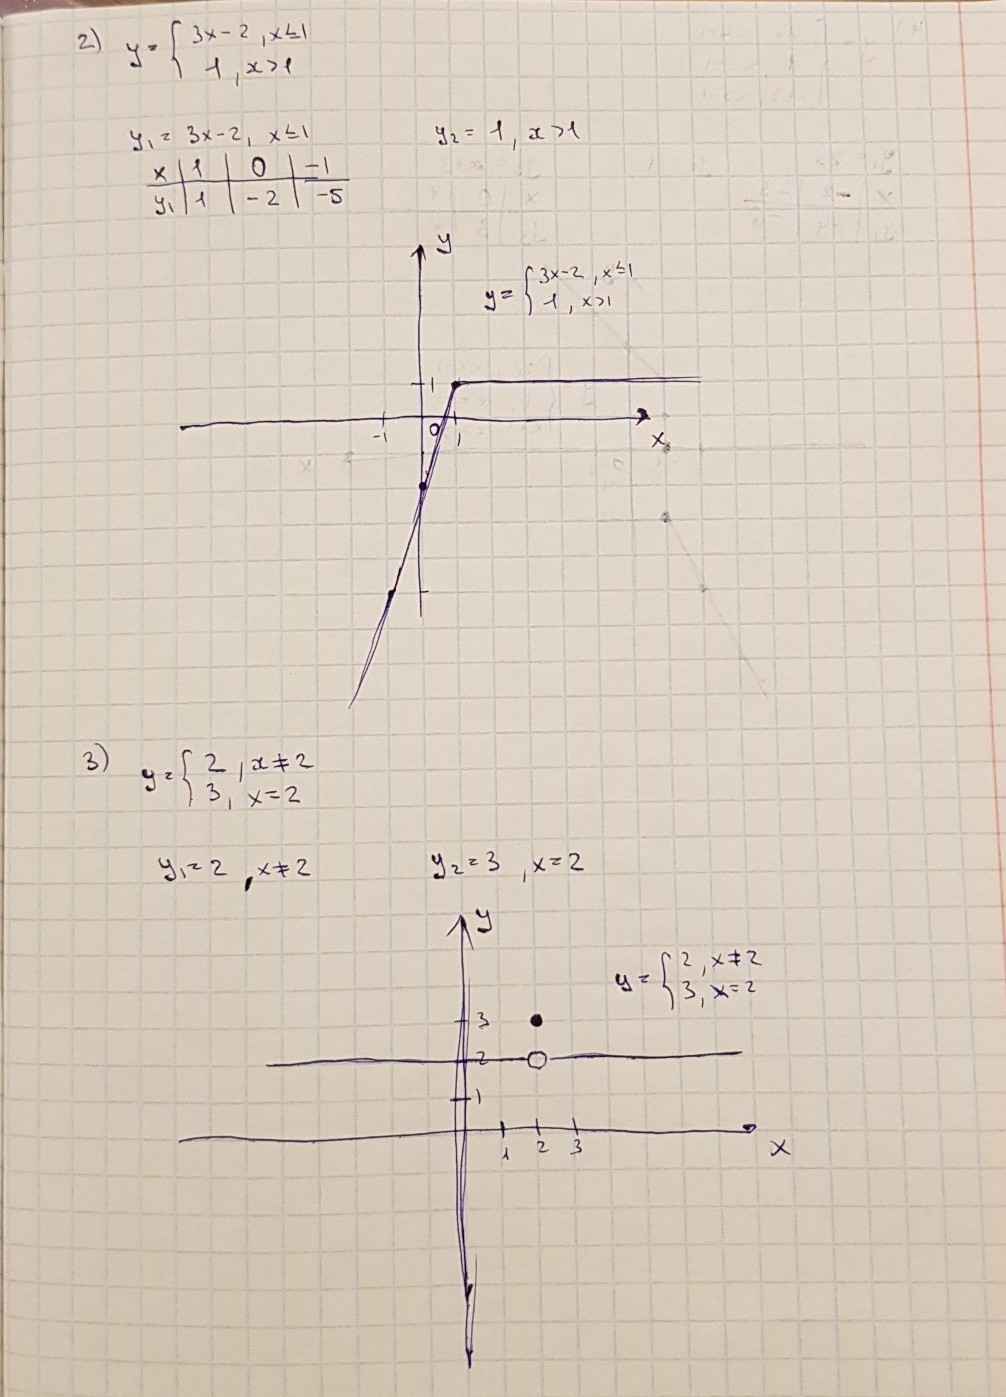 2) y = { 3x-2, x≤1
1, x>1
y₁ = 3x-2, x≤1
y₂ = 1, x>1
x | 1 | 0 | -1
y₁ | 1 | -2 | -5
y
y = { 3x-2, x≤1
1, x>1
1
-1 0 1
x
3) y = { 2, x≠2
3, x=2
y₁ = 2, x≠2
y₂ = 3, x=2
y
y = { 2, x≠2
3, x=2
3
2
1
1 2 3
x